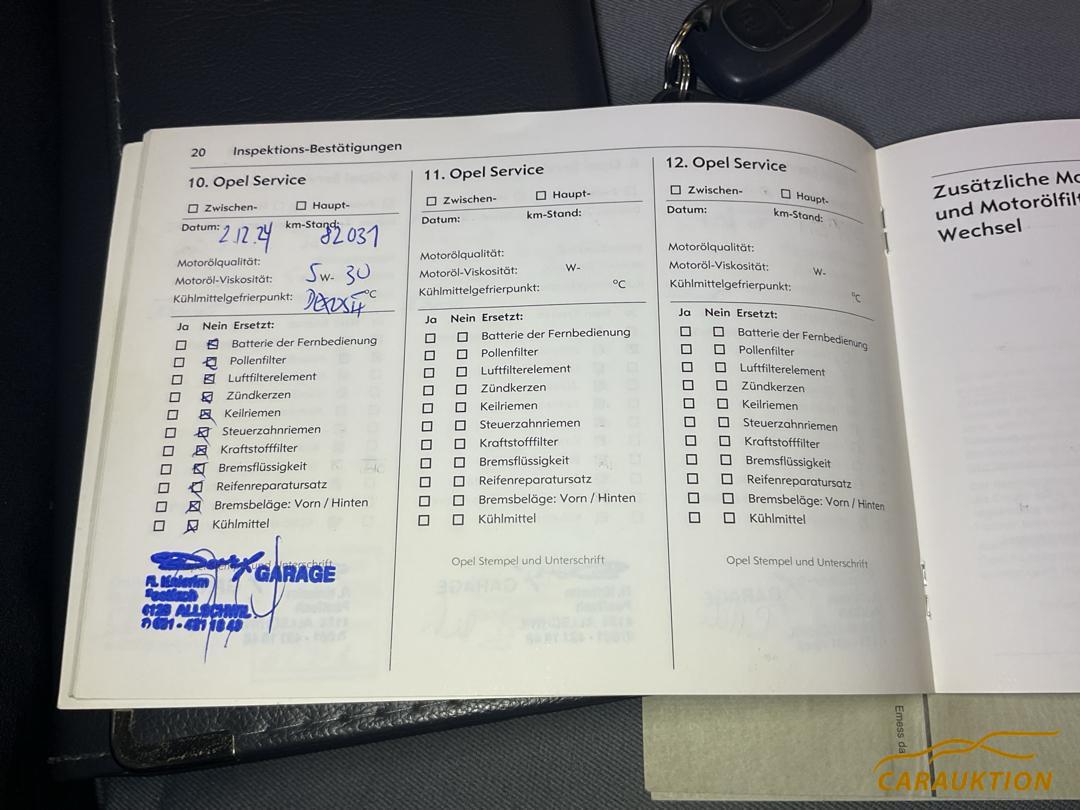 20 Inspektions-Bestätigungen
10. Opel Service
Zwischen- Haupt-
Datum: 2.12.24 km-Stand: 82031
Motorölqualität:
Motoröl-Viskosität: 5 W- 30
Kühlmittelgefrierpunkt: °C
Ja Nein Ersetzt:
Batterie der Fernbedienung
Pollenfilter
Luftfilterelement
Zündkerzen
Keilriemen
Steuerzahnriemen
Kraftstofffilter
Bremsflüssigkeit
Reifenreparatursatz
Bremsbeläge: Vorn / Hinten
Kühlmittel
GARAGE
Postfach
ALLSCHWIL
11. Opel Service
Zwischen- Haupt-
Datum: km-Stand:
Motorölqualität:
Motoröl-Viskosität: W-
Kühlmittelgefrierpunkt: °C
Ja Nein Ersetzt:
Batterie der Fernbedienung
Pollenfilter
Luftfilterelement
Zündkerzen
Keilriemen
Steuerzahnriemen
Kraftstofffilter
Bremsflüssigkeit
Reifenreparatursatz
Bremsbeläge: Vorn / Hinten
Kühlmittel
Opel Stempel und Unterschrift
12. Opel Service
Zwischen- Haupt-
Datum: km-Stand:
Motorölqualität:
Motoröl-Viskosität: W-
Kühlmittelgefrierpunkt: °C
Ja Nein Ersetzt:
Batterie der Fernbedienung
Pollenfilter
Luftfilterelement
Zündkerzen
Keilriemen
Steuerzahnriemen
Kraftstofffilter
Bremsflüssigkeit
Reifenreparatursatz
Bremsbeläge: Vorn / Hinten
Kühlmittel
Opel Stempel und Unterschrift
Zusätzliche Mo
und Motorölfilt
Wechsel
Emess da
CARAUKTION